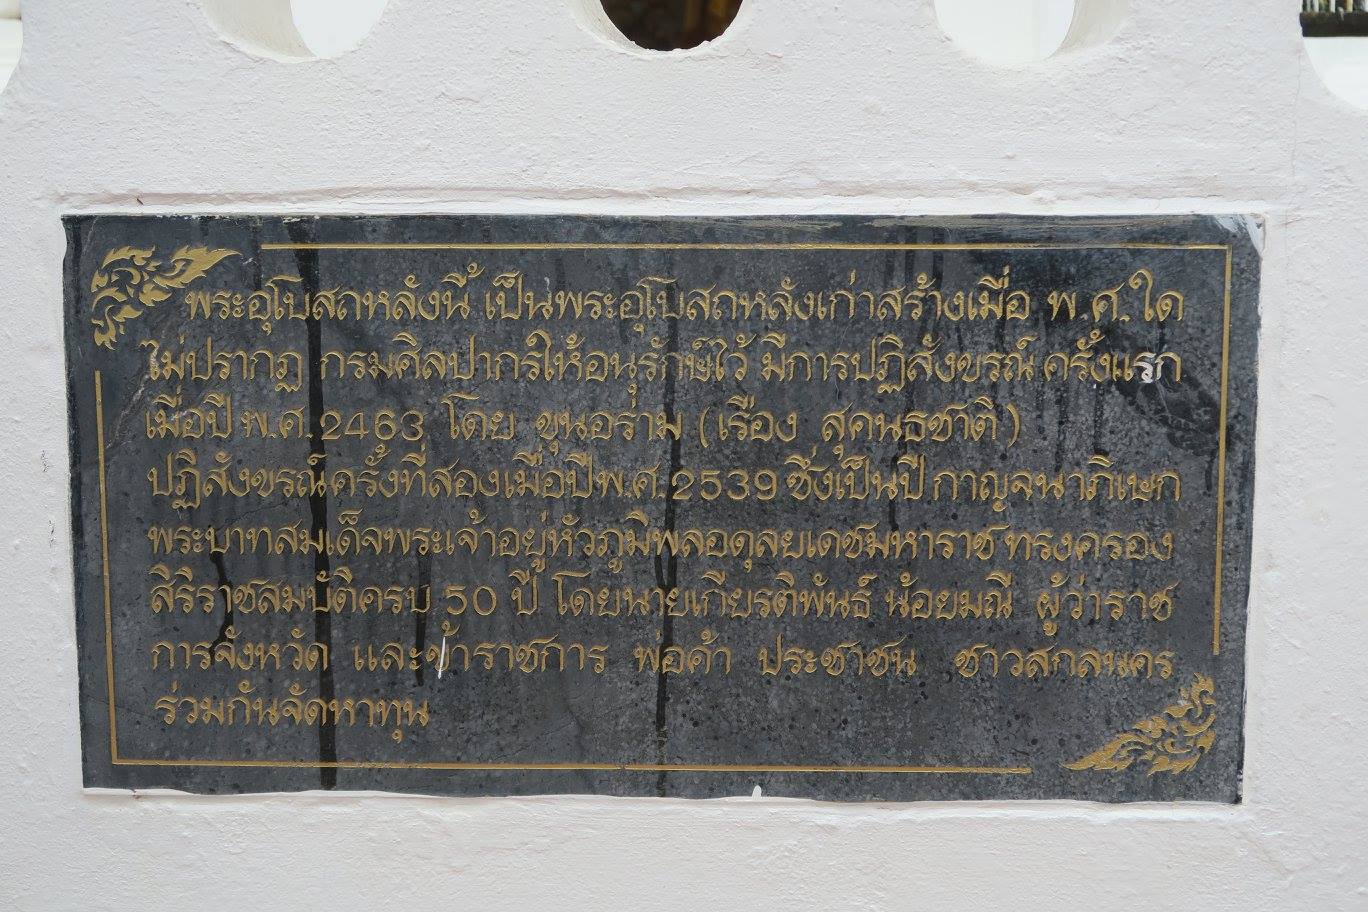 พระอุโบสถหลังนี้ เป็นพระอุโบสถหลังเก่าสร้างเมื่อ พ.ศ.ใด
ไม่ปรากฏ กรมศิลปากรให้อนุรักษ์ไว้ มีการปฏิสังขรณ์ ครั้งแรก
เมื่อปี พ.ศ. 2463 โดย ขุนอร่าม (เรือง สุคนธชาติ)
ปฏิสังขรณ์ครั้งที่สองเมื่อปีพ.ศ. 2539 ซึ่งเป็นปี กาญจนาภิเษก
พระบาทสมเด็จพระเจ้าอยู่หัวภูมิพลอดุลยเดชมหาราช ทรงครอง
สิริราชสมบัติครบ 50 ปี โดยนายเกียรติพันธ์ น้อยมณี ผู้ว่าราช
การจังหวัด และข้าราชการ พ่อค้า ประชาชน ชาวสกลนคร
ร่วมกันจัดหาทุน